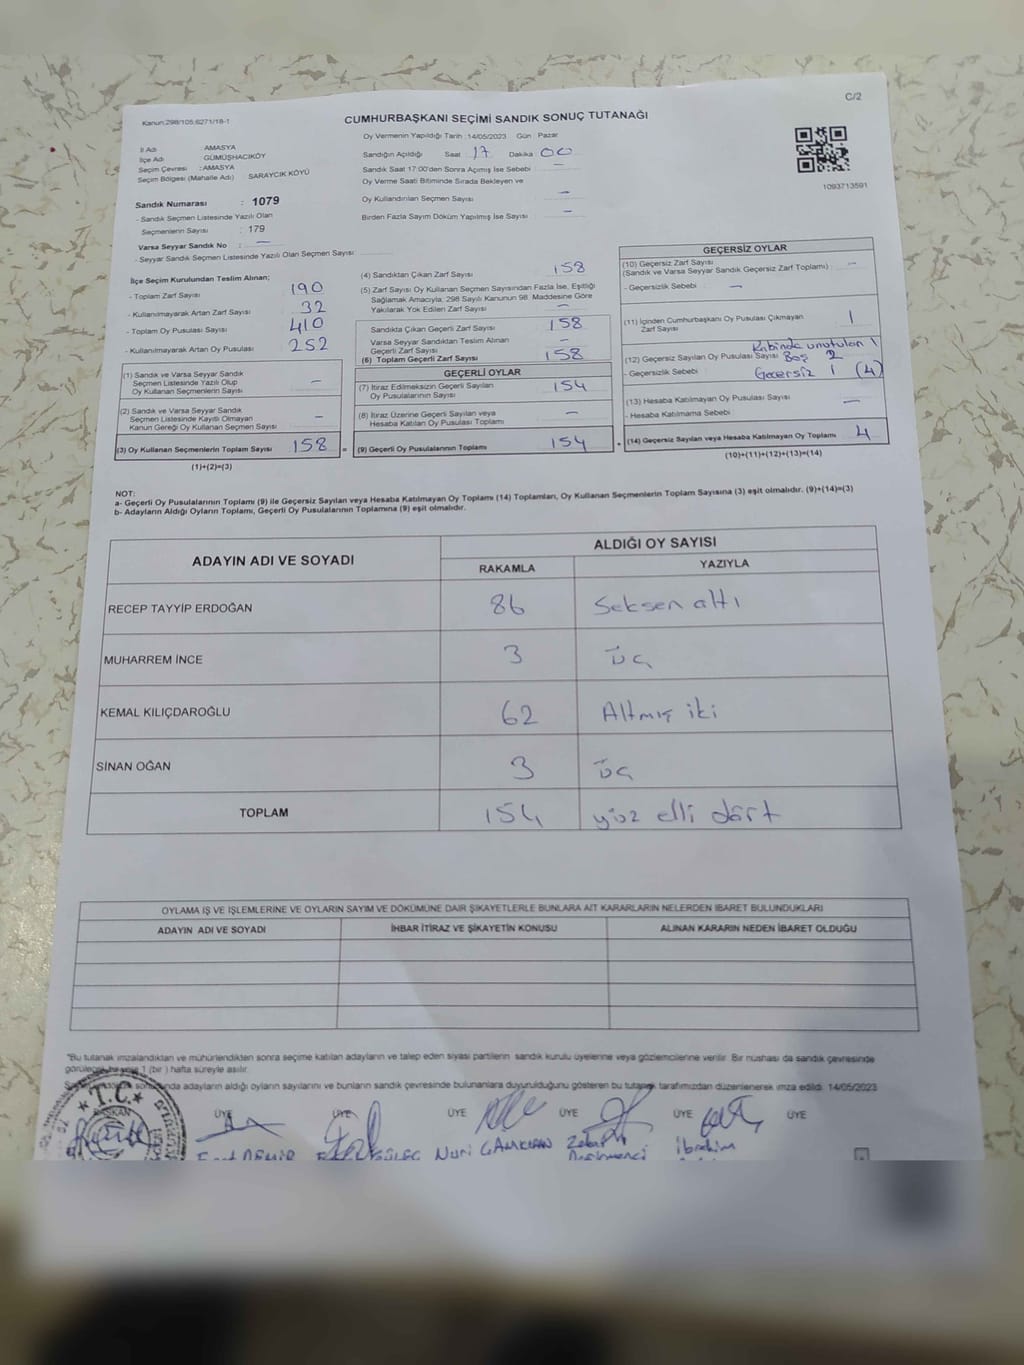 C/2
Kanun:298/105;6271/18-1
CUMHURBAŞKANI SEÇİMİ SANDIK SONUÇ TUTANAĞI
Oy Vermenin Yapıldığı Tarih :14/05/2023 Gün : Pazar
İl Adı : AMASYA
İlçe Adı : GÜMÜŞHACIKÖY
Seçim Çevresi : AMASYA
Seçim Bölgesi (Mahalle Adı) SARAYCIK KÖYÜ
Sandığın Açıldığı Saat 17 Dakika 00
Sandık Saat 17:00'den Sonra Açımış İse Sebebi —
Oy Verme Saati Bitiminde Sırada Bekleyen ve
Oy Kullandırılan Seçmen Sayısı —
Birden Fazla Sayım Döküm Yapılmış İse Sayısı —
1093713591
Sandık Numarası : 1079
- Sandık Seçmen Listesinde Yazılı Olan
Seçmenlerin Sayısı : 179
Varsa Seyyar Sandık No : —
- Seyyar Sandık Seçmen Listesinde Yazılı Olan Seçmen Sayısı
İlçe Seçim Kurulundan Teslim Alınan;
- Toplam Zarf Sayısı 190
- Kullanılmayarak Artan Zarf Sayısı 32
- Toplam Oy Pusulası Sayısı 410
- Kullanılmayarak Artan Oy Pusulası 252
(1) Sandık ve Varsa Seyyar Sandık
Seçmen Listesinde Yazılı Olup
Oy Kullanan Seçmenlerin Sayısı —
(2) Sandık ve Varsa Seyyar Sandık
Seçmen Listesinde Kayıtlı Olmayan
Kanun Gereği Oy Kullanan Seçmen Sayısı —
(3) Oy Kullanan Seçmenlerin Toplam Sayısı 158 =
(1)+(2)=(3)
(4) Sandıktan Çıkan Zarf Sayısı 158
(5) Zarf Sayısı Oy Kullanan Seçmen Sayısından Fazla İse, Eşitliği
Sağlamak Amacıyla, 298 Sayılı Kanunun 98. Maddesine Göre
Yakılarak Yok Edilen Zarf Sayısı —
Sandıkta Çıkan Geçerli Zarf Sayısı 158
Varsa Seyyar Sandıktan Teslim Alınan
Geçerli Zarf Sayısı —
(6) Toplam Geçerli Zarf Sayısı 158
GEÇERLİ OYLAR
(7) İtiraz Edilmeksizin Geçerli Sayılan
Oy Pusulalarının Sayısı 154
(8) İtiraz Üzerine Geçerli Sayılan veya
Hesaba Katılan Oy Pusulaları Toplamı —
(9) Geçerli Oy Pusulalarının Toplamı 154 +
GEÇERSİZ OYLAR
(10) Geçersiz Zarf Sayısı
(Sandık ve Varsa Seyyar Sandık Geçersiz Zarf Toplamı) —
- Geçersizlik Sebebi —
(11) İçinden Cumhurbaşkanı Oy Pusulası Çıkmayan
Zarf Sayısı 1
Kabinde unutulan 1
(12) Geçersiz Sayılan Oy Pusulası Sayısı Boş 2
- Geçersizlik Sebebi Geçersiz 1 (4)
(13) Hesaba Katılmayan Oy Pusulası Sayısı —
- Hesaba Katılmama Sebebi
(14) Geçersiz Sayılan veya Hesaba Katılmayan Oy Toplamı 4
(10)+(11)+(12)+(13)=(14)
NOT:
a- Geçerli Oy Pusulalarının Toplamı (9) ile Geçersiz Sayılan veya Hesaba Katılmayan Oy Toplamı (14) Toplamları, Oy Kullanan Seçmenlerin Toplam Sayısına (3) eşit olmalıdır. (9)+(14)=(3)
b- Adayların Aldığı Oyların Toplamı, Geçerli Oy Pusulalarının Toplamına (9) eşit olmalıdır.
ADAYIN ADI VE SOYADI ALDIĞI OY SAYISI
RAKAMLA YAZIYLA
RECEP TAYYİP ERDOĞAN 86 Seksen altı
MUHARREM İNCE 3 üç
KEMAL KILIÇDAROĞLU 62 Altmış iki
SİNAN OĞAN 3 üç
TOPLAM 154 yüz elli dört
OYLAMA İŞ VE İŞLEMLERİNE VE OYLARIN SAYIM VE DÖKÜMÜNE DAİR ŞİKAYETLERLE BUNLARA AİT KARARLARIN NELERDEN İBARET BULUNDUKLARI
ADAYIN ADI VE SOYADI İHBAR İTİRAZ VE ŞİKAYETİN KONUSU ALINAN KARARIN NEDEN İBARET OLDUĞU
"Bu tutanak imzalandıktan ve mühürlendikten sonra seçime katılan adayların ve talep eden siyasi partilerin sandık kurulu üyelerine veya gözlemcilerine verilir. Bir nüshası da sandık çevresinde
1 (bir) hafta süreyle asılır.
adayların aldığı oyların sayılarını ve bunların sandık çevresinde bulunanlara duyurulduğunu gösteren bu tutanak tarafımızdan düzenlenerek imza edildi. 14/05/2023
T.C.
BAŞKAN ÜYE ÜYE ÜYE ÜYE ÜYE ÜYE
DEMİR Nuri İbrahim